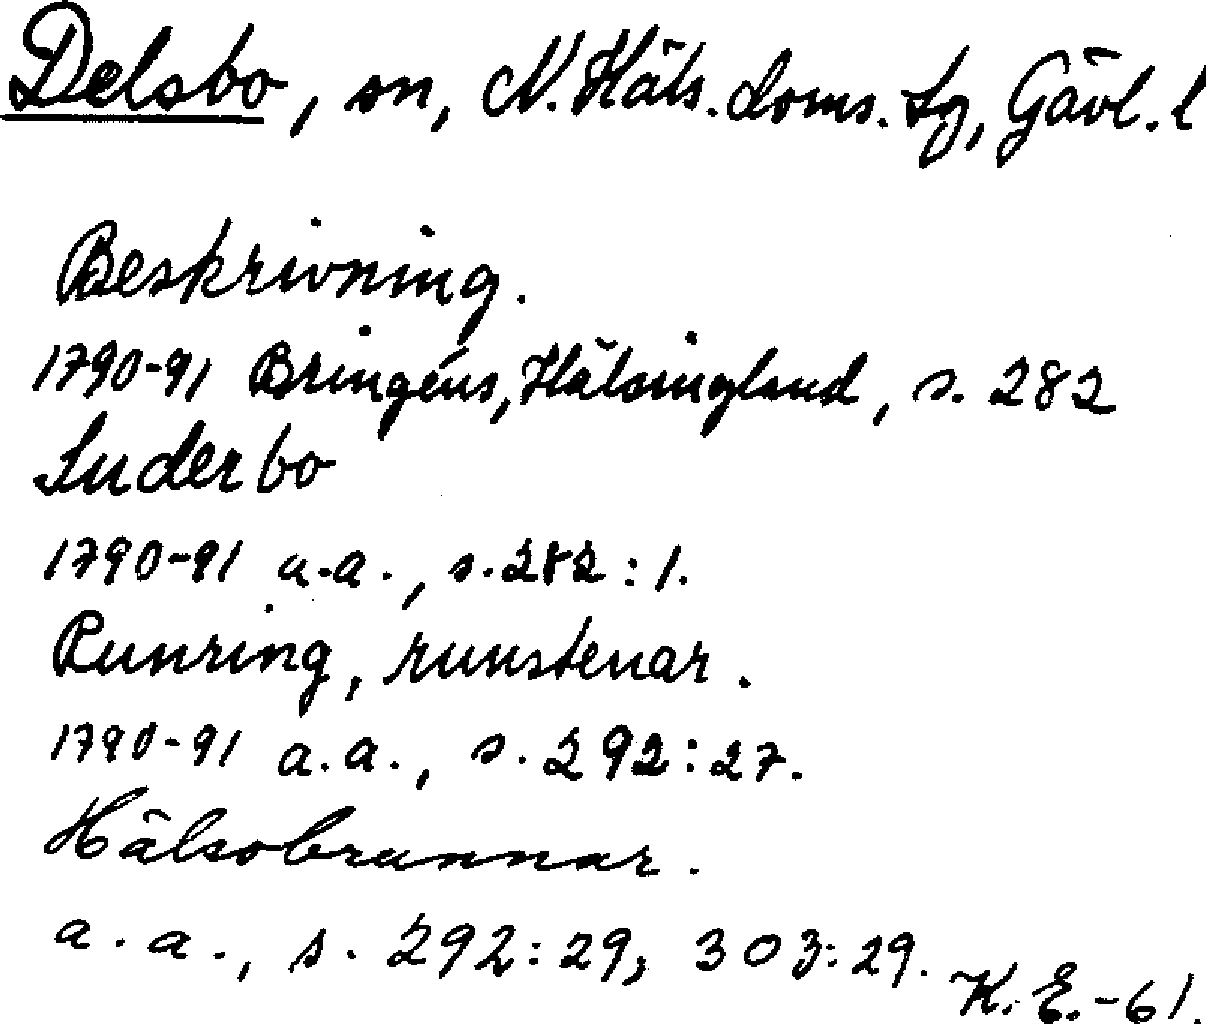 Delsbo, sn, N. Häls. doms. sg, Gävl. l
Beskrivning.
1790-91 Bringéus, Hälsingland, s. 282
Suderbo
1790-91 a.a., s. 282:1.
Runring, runstenar.
1790-91 a.a., s. 292:27.
Hälsobrunnar.
a.a., s. 292:29, 303:29.
K.E.-61.